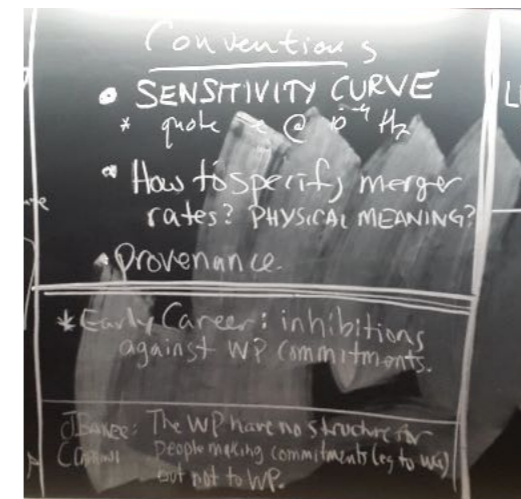 Conventions
• SENSITIVITY CURVE
* quote e @ 10⁻⁴ Hz
• How to specify merger
rates? PHYSICAL MEANING?
• Provenance.
*Early Career: inhibitions
against WP commitments.
The WP have no structure for
people making commitments (eg to WG)
but not to WP.
L